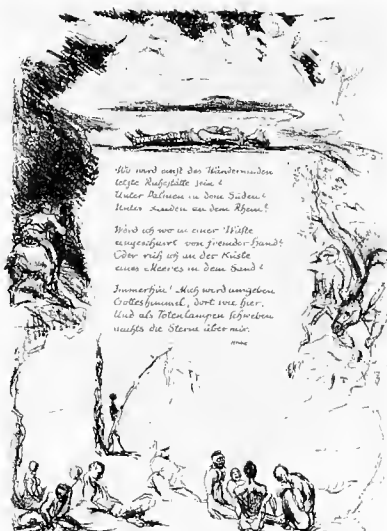 Wo wird einst des Wandermüden
letzte Ruhestätte sein?
Unter Palmen in dem Süden?
Unter Linden an dem Rhein?
Werd ich wo in einer Wüste
eingescharrt von fremder Hand?
Oder ruh ich an der Küste
eines Meeres in dem Sand?
Immerhin! Mich wird umgeben
Gotteshimmel, dort wie hier,
Und als Totenlampen schweben
nachts die Sterne über mir.